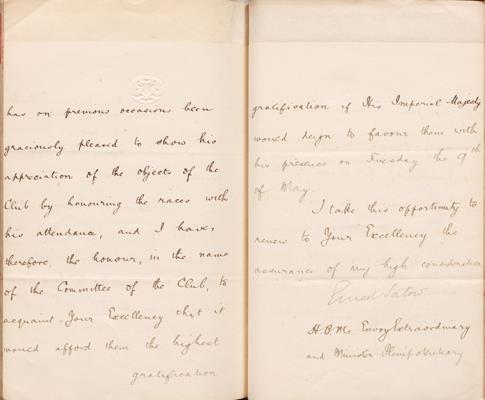 has on previous occasions been
graciously pleased to show his
appreciation of the objects of the
Club by honouring the races with
his attendance, and I have,
therefore, the honour, in the name
of the Committee of the Club, to
acquaint Your Excellency that it
would afford them the highest
gratification
gratification if His Imperial Majesty
would deign to favour them with
his presence on Tuesday the 9th
of May.
I take this opportunity to
renew to Your Excellency the
assurance of my high consideration
Ernest Satow
H.B.M's Envoy Extraordinary
and Minister Plenipotentiary